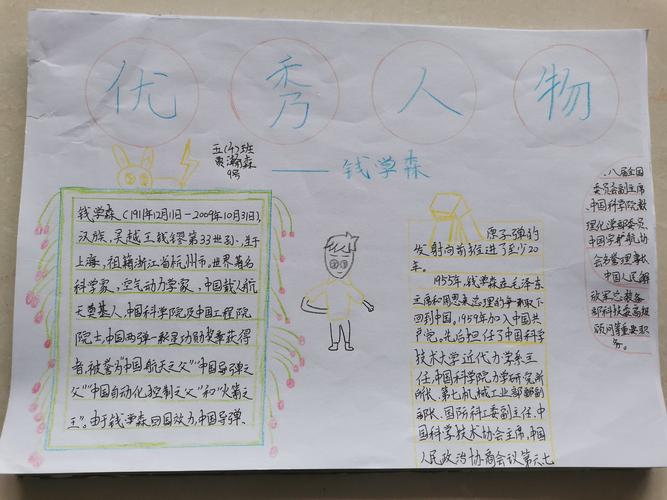 优秀人物
五(4)班
9号
——钱学森
钱学森(1911年12月11日-2009年10月31日),
汉族,吴越王钱镠第33世孙,生于
上海,祖籍浙江省杭州市。世界著名
科学家,空气动力学家,中国载人航
天奠基人,中国科学院及中国工程院
院士,中国两弹一星功勋奖章获得
者,被誉为"中国航天之父""中国导弹之
父""中国自动化控制之父"和"火箭之
王"。由于钱学森回国效力,中国导弹、
原子弹的
发射向前推进了至少20
年。
1955年,钱学森在毛泽东
主席和周恩来总理的争取下
回到中国。1959年加入中国共
产党,先后担任了中国科学
技术大学近代力学系主
任,中国科学院力学研究所
所长、第七机械工业部副部
部长、国防科工委副主任、中
国科学技术协会主席、中国
人民政治协商会议第六七
、八届全国
委员会副主席
中国科学院数
理化学部委员、
中国宇航协
会名誉理事长
中国人民解
放军总装备
部科技委高级
顾问等重要职
务。